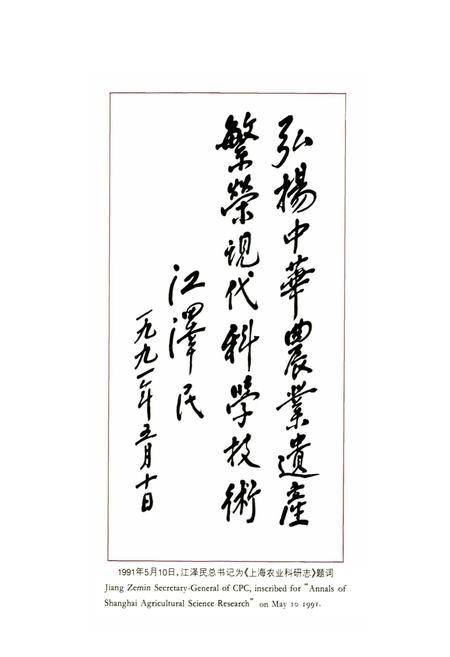 弘揚中華農業遺產
繁榮現代科學技術
江澤民
一九九一年五月十日
1991年5月10日,江泽民总书记为《上海农业科研志》题词
Jiang Zemin Secretary-General of CPC, inscribed for "Annals of
Shanghai Agricultural Science Research" on May 10 1991.